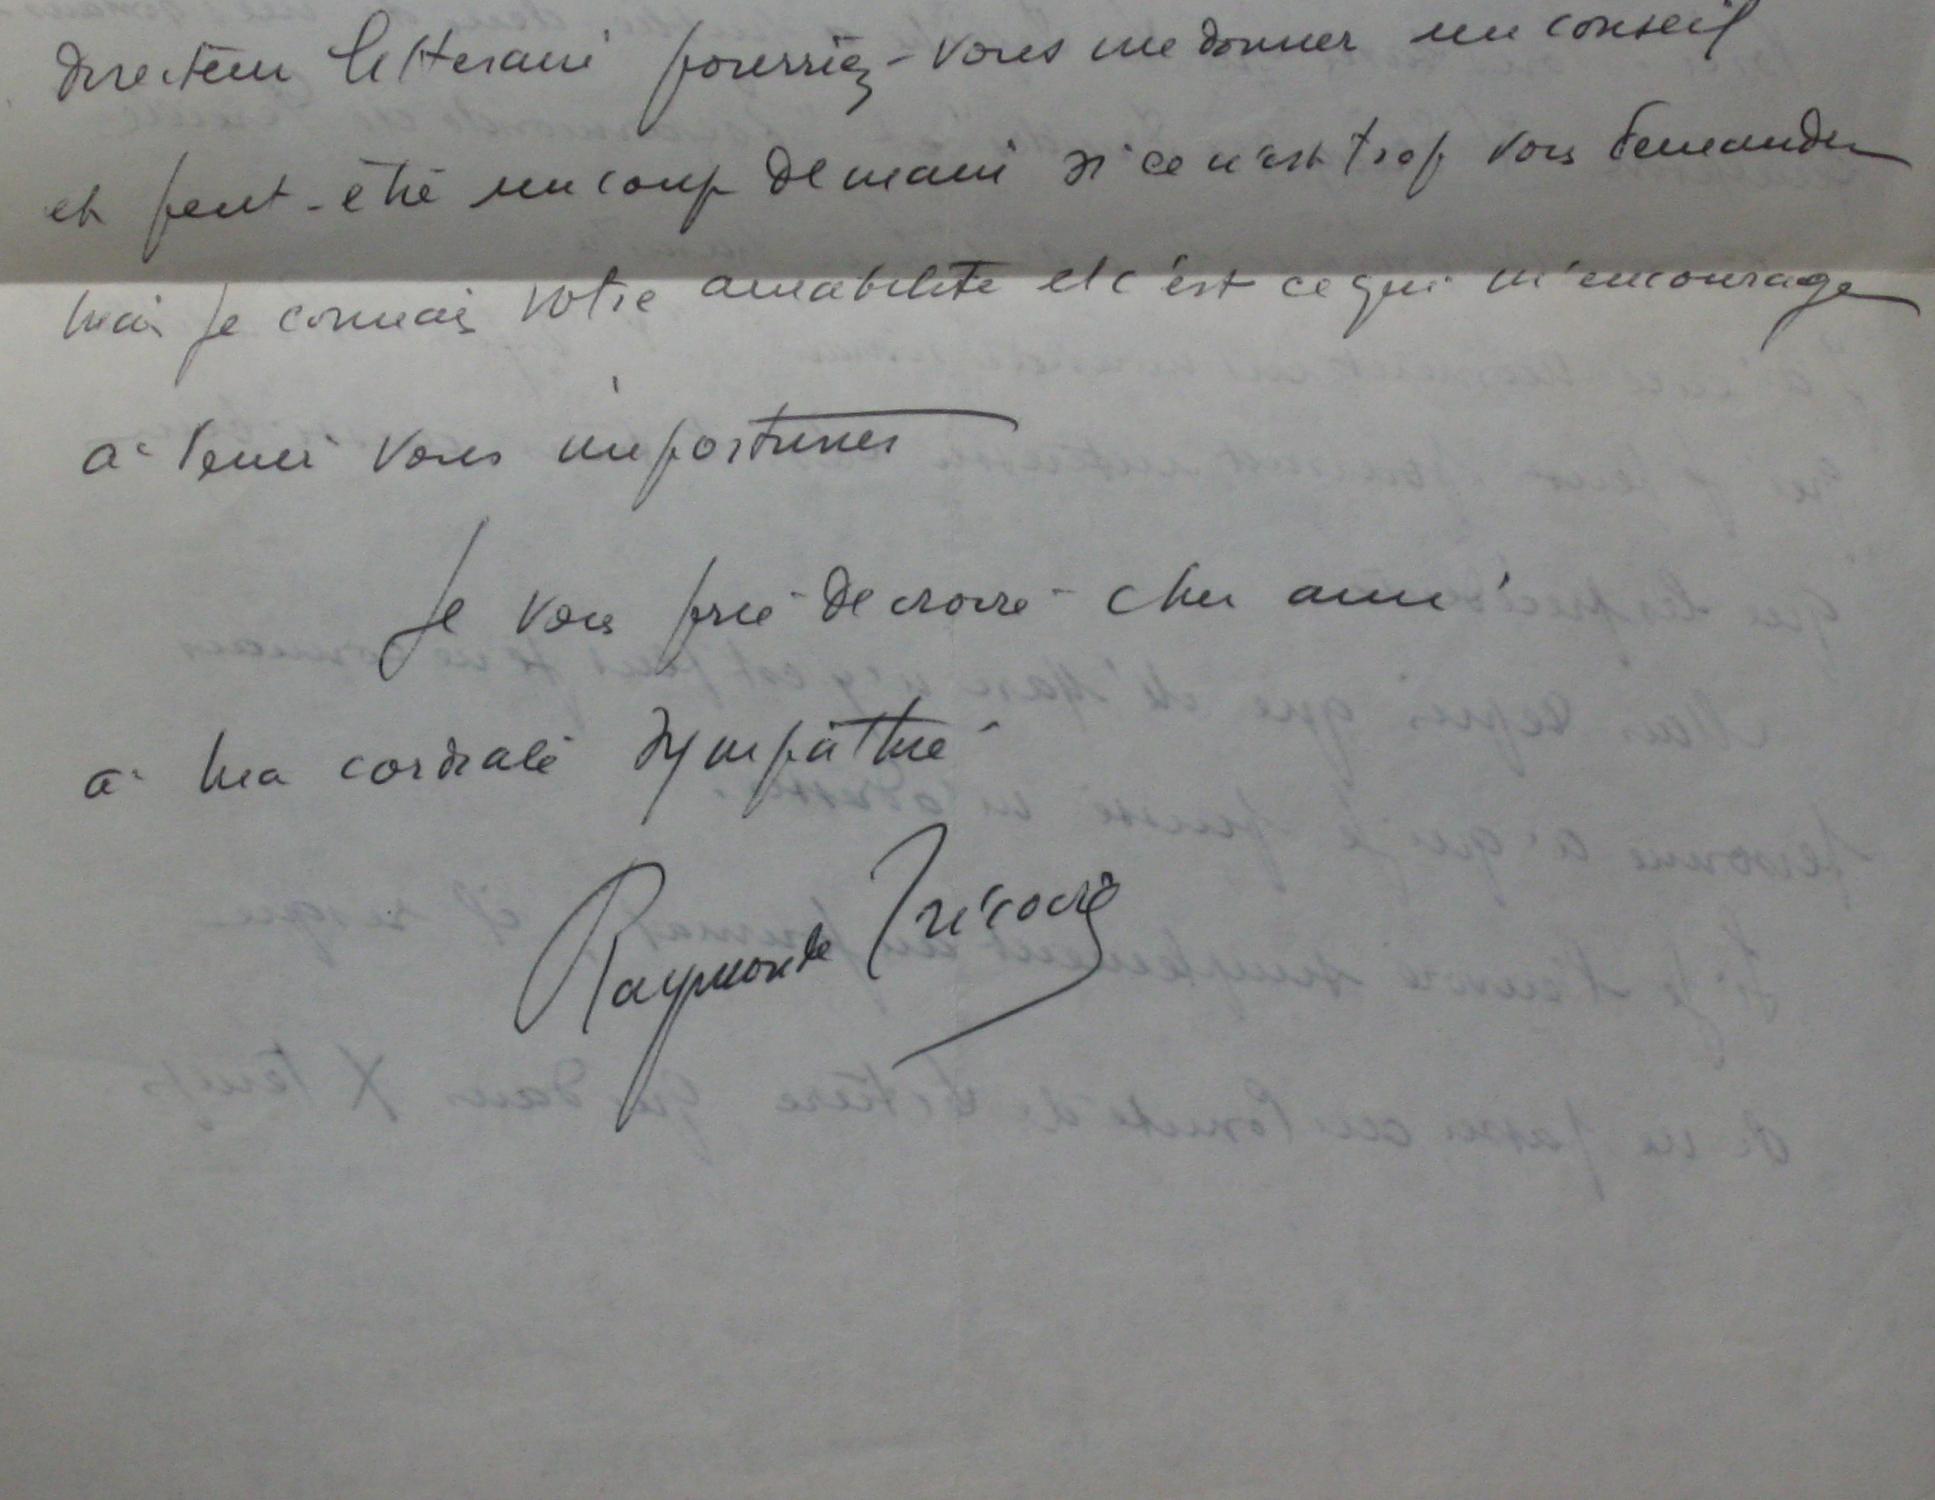 Directeur littéraire pourriez-vous me donner un conseil
et peut-être un coup de main si ce n'est trop vous demander
mais je connais votre amabilité et c'est ce qui m'encourage
à venir vous importuner
Je vous prie de croire cher ami
à ma cordiale sympathie
Raymonde Tricoire